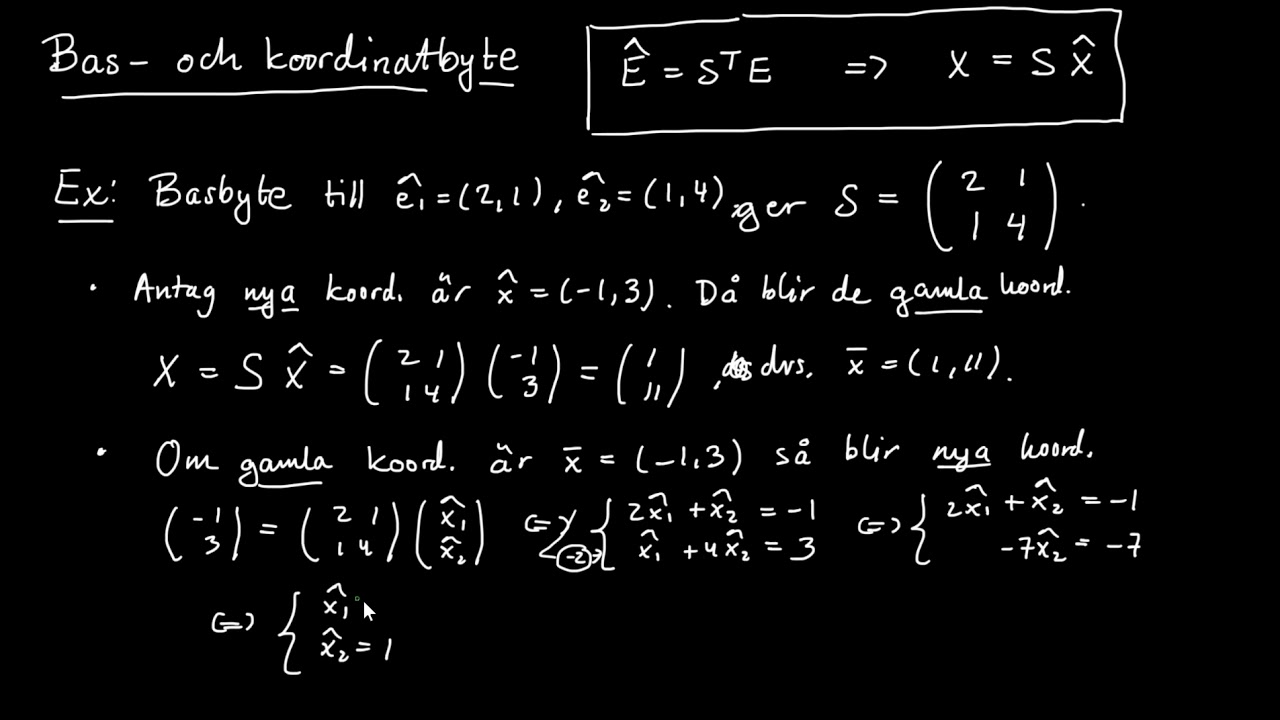 Bas- och koordinatbyte
Ê = Sᵀ E => X = S X̂
Ex: Basbyte till ê₁ = (2,1), ê₂ = (1,4), ger S = (2 1
1 4).
• Antag nya koord. är x̂ = (-1,3). Då blir de gamla koord.
X = S X̂ = (2 1 1 4)(-1 3) = (1 11), dvs. x̄ = (1,11).
• Om gamla koord. är x̄ = (-1,3) så blir nya koord.
(-1 3) = (2 1 1 4)(x̂₁ x̂₂) <=> { 2x̂₁ + x̂₂ = -1 <=> { 2x̂₁ + x̂₂ = -1
-2 x̂₁ + 4x̂₂ = 3 -7x̂₂ = -7
<=> { x̂₁
x̂₂ = 1